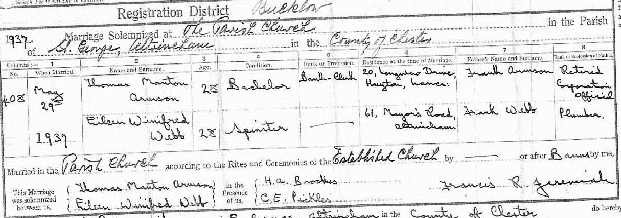 Registration District Bucklow
1937. Marriage Solemnized at The Parish Church in the Parish
of St. George, Altrincham in the County of Chester
No. When Married. Name and Surname. Age. Condition. Rank or Profession. Residence at the time of Marriage. Father's Name and Surname. Rank or Profession of Father.
408 May 29th 1937 Thomas Manton Arurson 28 Bachelor Bank-Clerk 20, Drive, Huyton, Lancs. Frank Retired Corporation Official
Eileen Winifred Webb 28 Spinster — 61, Mayor's Road, Altrincham. Frank Webb Plumber.
Married in the Parish Church according to the Rites and Ceremonies of the Established Church by — or after Banns by me,
This Marriage was solemnized between us, Thomas Manton Eileen Winifred Webb in the Presence of us, H.A. Brookes C.E. Pickles Francis R. Jeremiah
Altrincham in the County of Chester do hereby